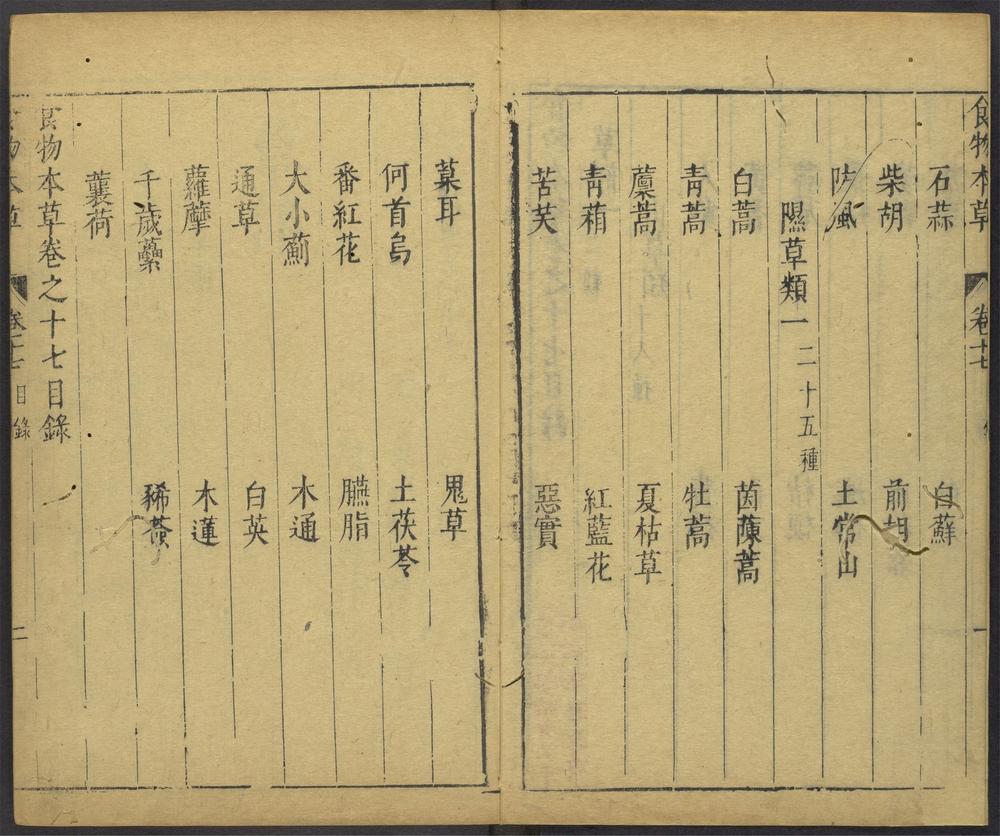 食物本草 卷十七 一
石蒜 白蘇
柴胡 前胡
防風 土常山
隰草類一 二十五種
白蒿 茵蔯蒿
青蒿 牡蒿
藁蒿 夏枯草
青葙 紅藍花
苦芺 惡實
葈耳 鬼草
何首烏 土茯苓
番紅花 臙脂
大小薊 木通
通草 白英
蘿藦 木蓮
千歲虆 豨薟
蘘荷
食物本草卷之十七目錄
食物本草 卷十七 目錄 二